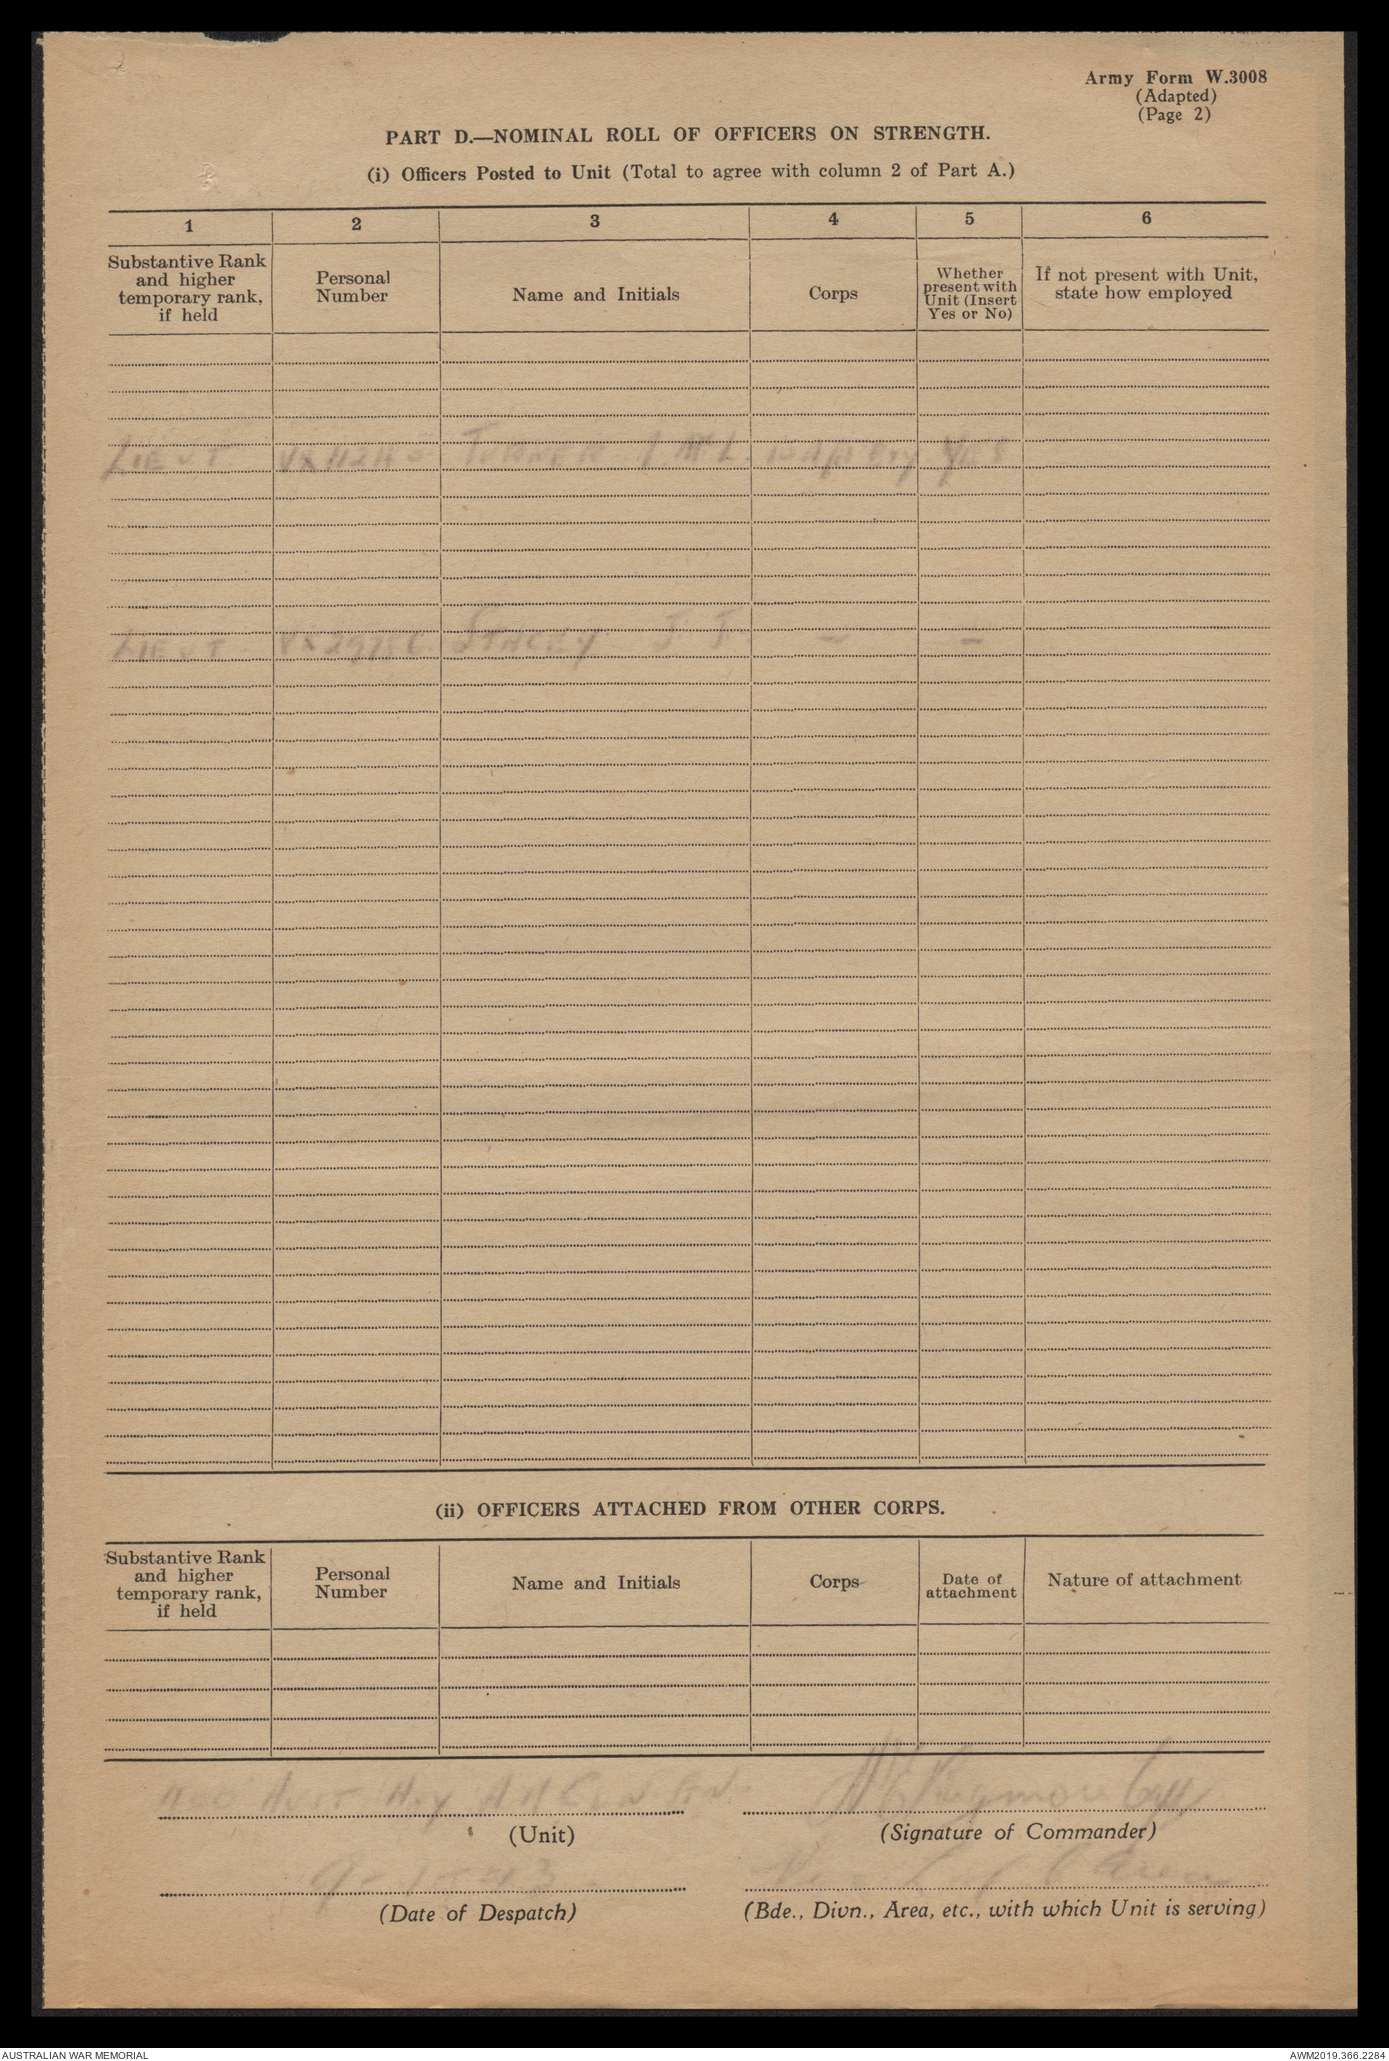 Army Form W.3008
(Adapted)
(Page 2)
PART D.—NOMINAL ROLL OF OFFICERS ON STRENGTH.
(i) Officers Posted to Unit (Total to agree with column 2 of Part A.)
1 2 3 4 5 6
Substantive Rank and higher temporary rank, if held
Personal Number
Name and Initials
Corps
Whether present with Unit (Insert Yes or No)
If not present with Unit, state how employed
LIEUT TURNER J. McL. YES
LIEUT STACEY J J - -
(ii) OFFICERS ATTACHED FROM OTHER CORPS.
Substantive Rank and higher temporary rank, if held
Personal Number
Name and Initials
Corps
Date of attachment
Nature of attachment
AUST HVY
(Unit)
(Signature of Commander)
(Date of Despatch)
(Bde., Divn., Area, etc., with which Unit is serving)
AUSTRALIAN WAR MEMORIAL
AWM2019.366.2284